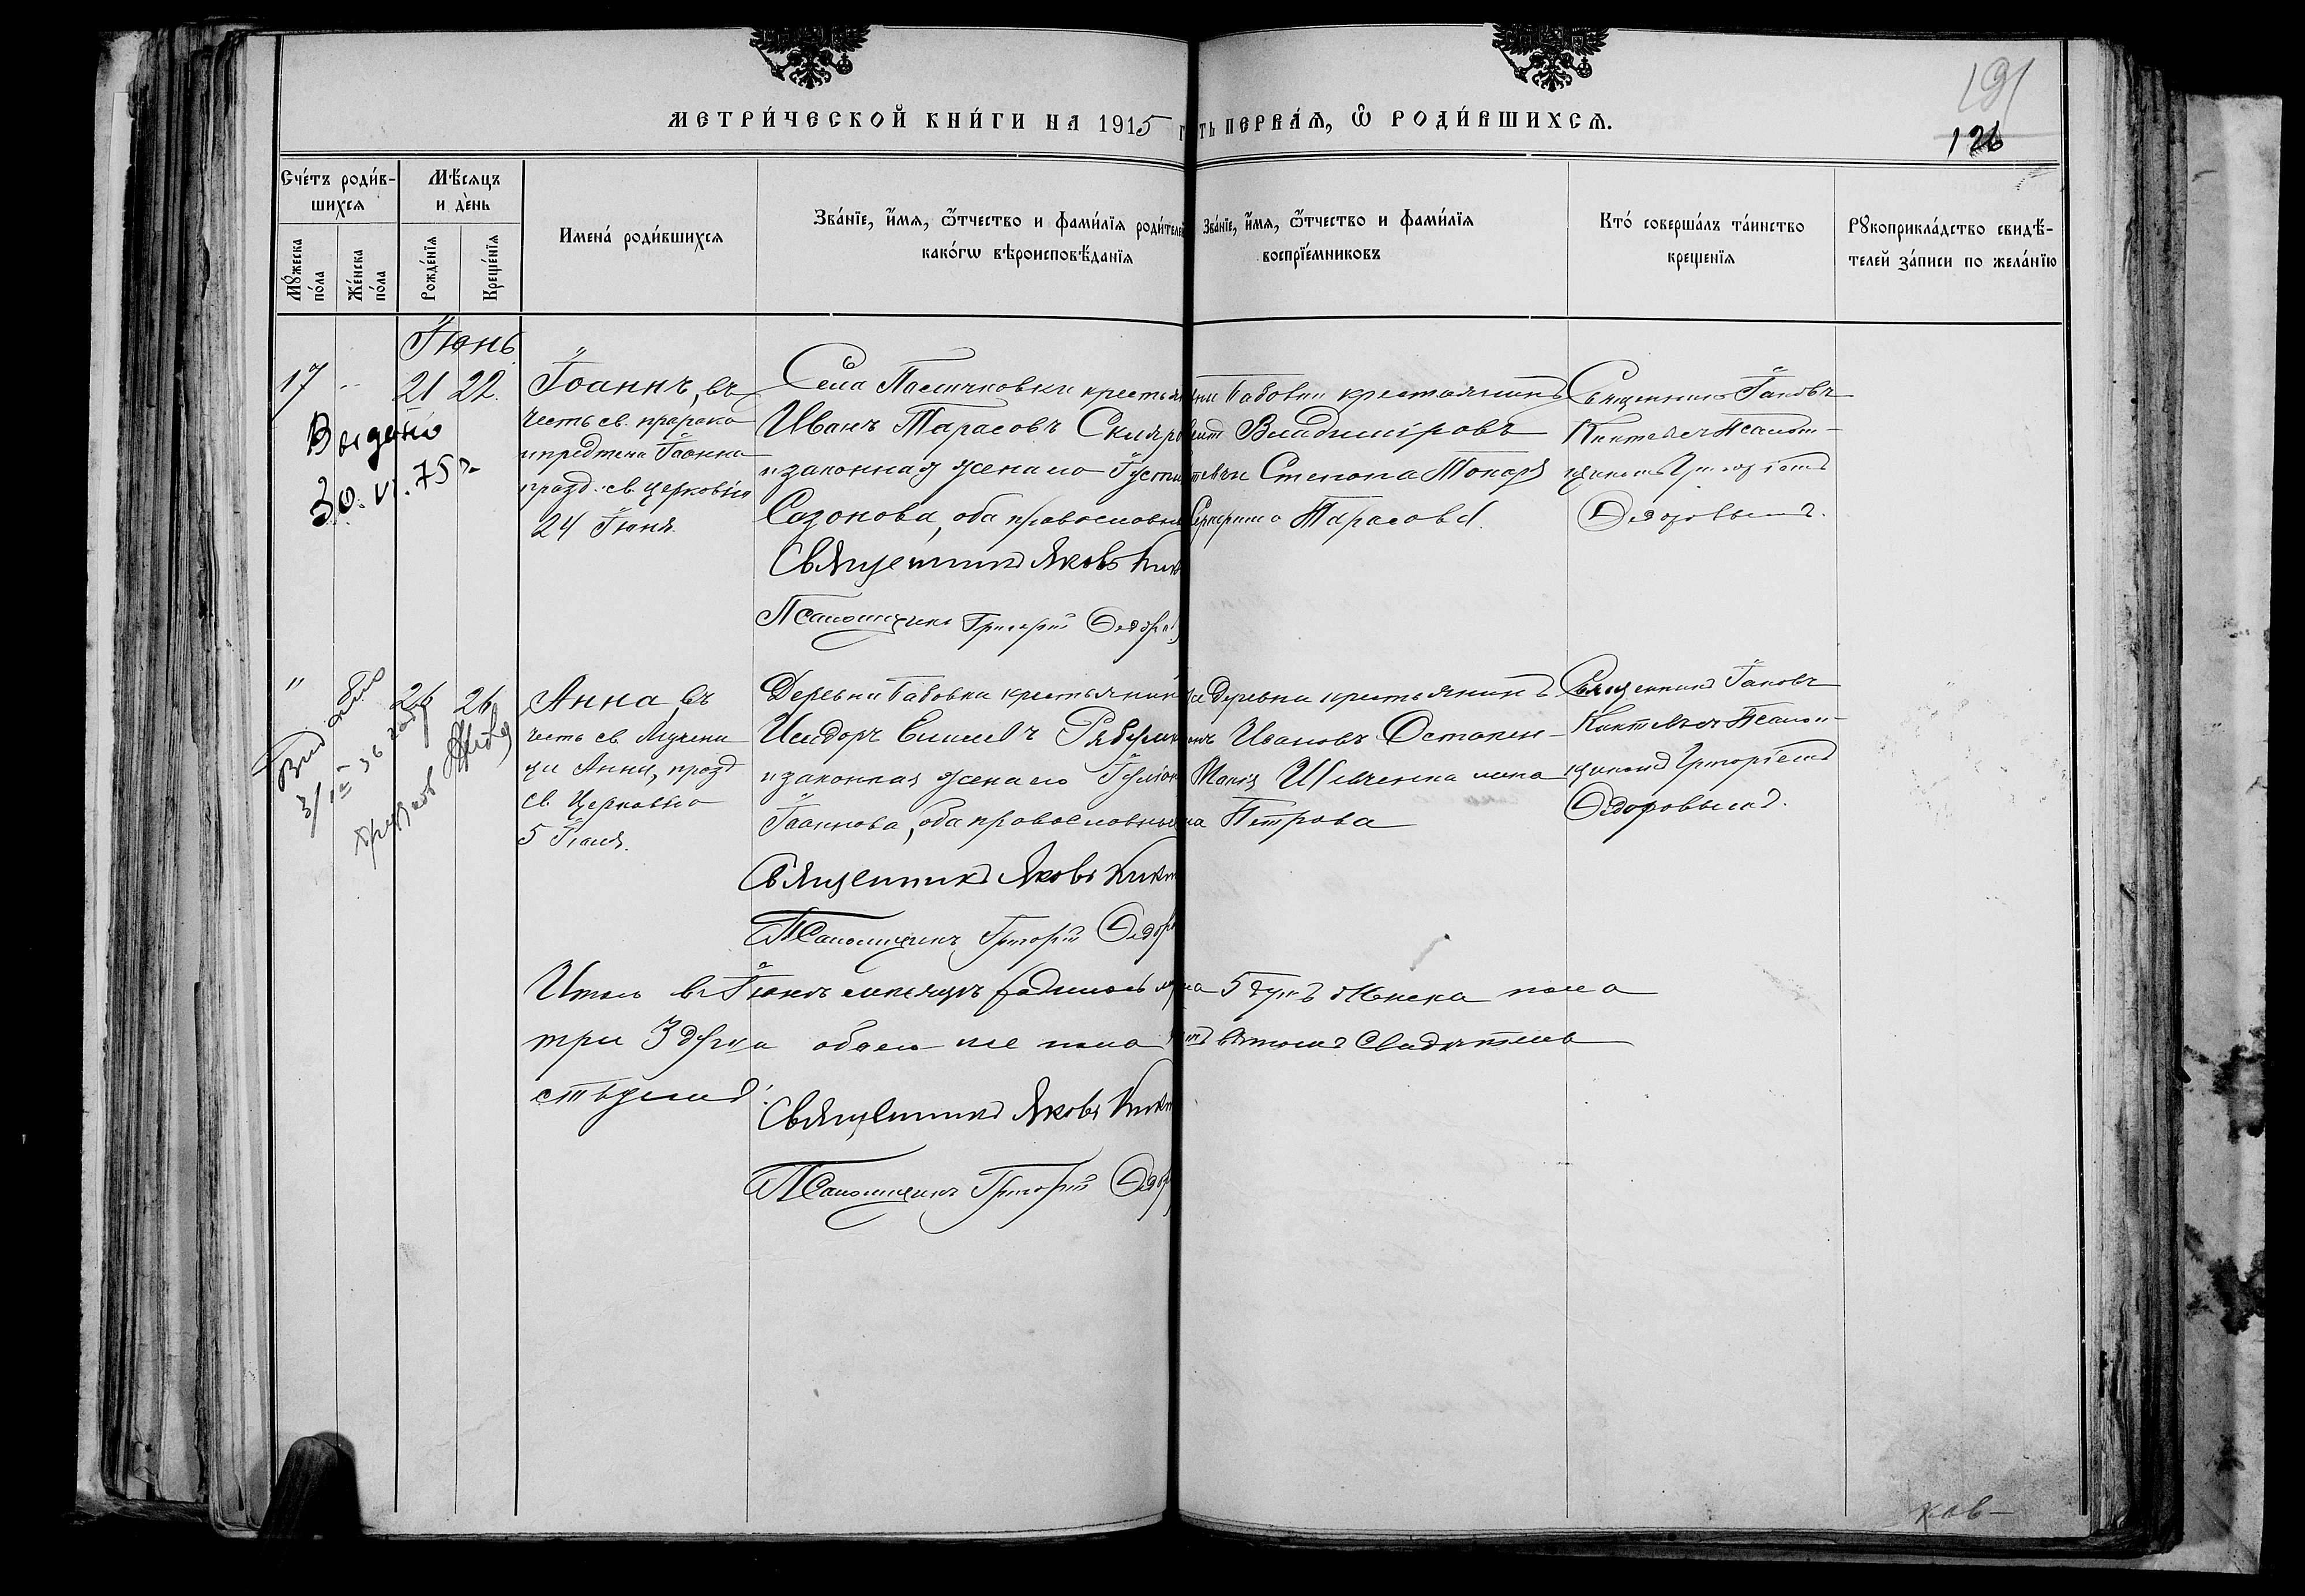 МЕТРИ́ЧЕСКОЙ КНИ́ГИ НА 1915 Г
ТЬ ПЕРВА́Ѧ, Ѡ РОДИ́ВШИХСѦ.
191
126
Сче́тъ роди́в-
шихсѧ
Мꙋ́жеска
по́ла
Же́нска
по́ла
Мѣ́сѧцъ
и де́нь
Рожде́нїѧ
Креще́нїѧ
Имена́ роди́вшихсѧ
Зва́нїе, и́мѧ, ѻ́тчество и фами́лїѧ роди́телей
како́гѡ вѣроисповѣ́данїѧ
Зва́нїе, и́мѧ, ѻ́тчество и фами́лїѧ
воспрїе́мниковъ
Кто́ соверша́лъ та́инство
креще́нїѧ
Рꙋкоприкла́дство свидѣ́-
телей за́писи по жела́нїю
Іюнь
17
21 22.
Выдано
30. VI. 75 г.
Іоаннъ, въ
честь св. пророка
и предтечи Іоанна
празд. св. церковью
24 Іюня.
Села Пасичковки крестьян
Иванъ Тарасовъ Скляр
и законная жена его Густи
Сазонова, оба православны
Священникъ Яковъ Кикт
Псаломщикъ Григорій Федоро
Бабовки крестьянинъ
Владиміровъ
Степана Токаря
Тарасова.
Священникъ Іаковъ
Киктевъ съ Псалом-
щикомъ Григоріемъ
Федоровымъ.
"
26 26
Анна, въ
честь св. Мучени
цы Анны, празд
св. Церковью
5 Іюля.
Деревни Бабовки крестьянин
Исидоръ Рябуш
и законная жена его Іуліан
Іоаннова, оба православные
Священникъ Яковъ Кикт
Псаломщикъ Григорій Федоро
деревни крестьянинъ
Ивановъ Остапен-
Шевченка жена
на Петрова
Священникъ Іаковъ
Киктевъ съ Псалом-
щикомъ Григоріемъ
Федоровымъ.
Итого въ Іюнѣ мѣсяцѣ родилось
5 душъ женска пола
три 3 души а обоего же пола
въ томъ свидѣтель
ствуемъ:
Священникъ Яковъ Кикт
Псаломщикъ Григорій Федор